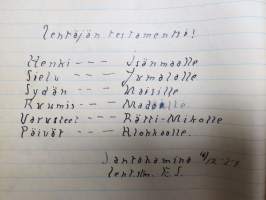 Lentäjän testamentti!
Henki - - - Isänmaalle
Sielu - - - Jumalalle.
Sydän - - - Naisille
Ruumis - - - Madoille.
Varusteet - - - Rätti-Mikolle
Päivät - - - Klohkoalle.
Santahamina
Lentstm. E.S.